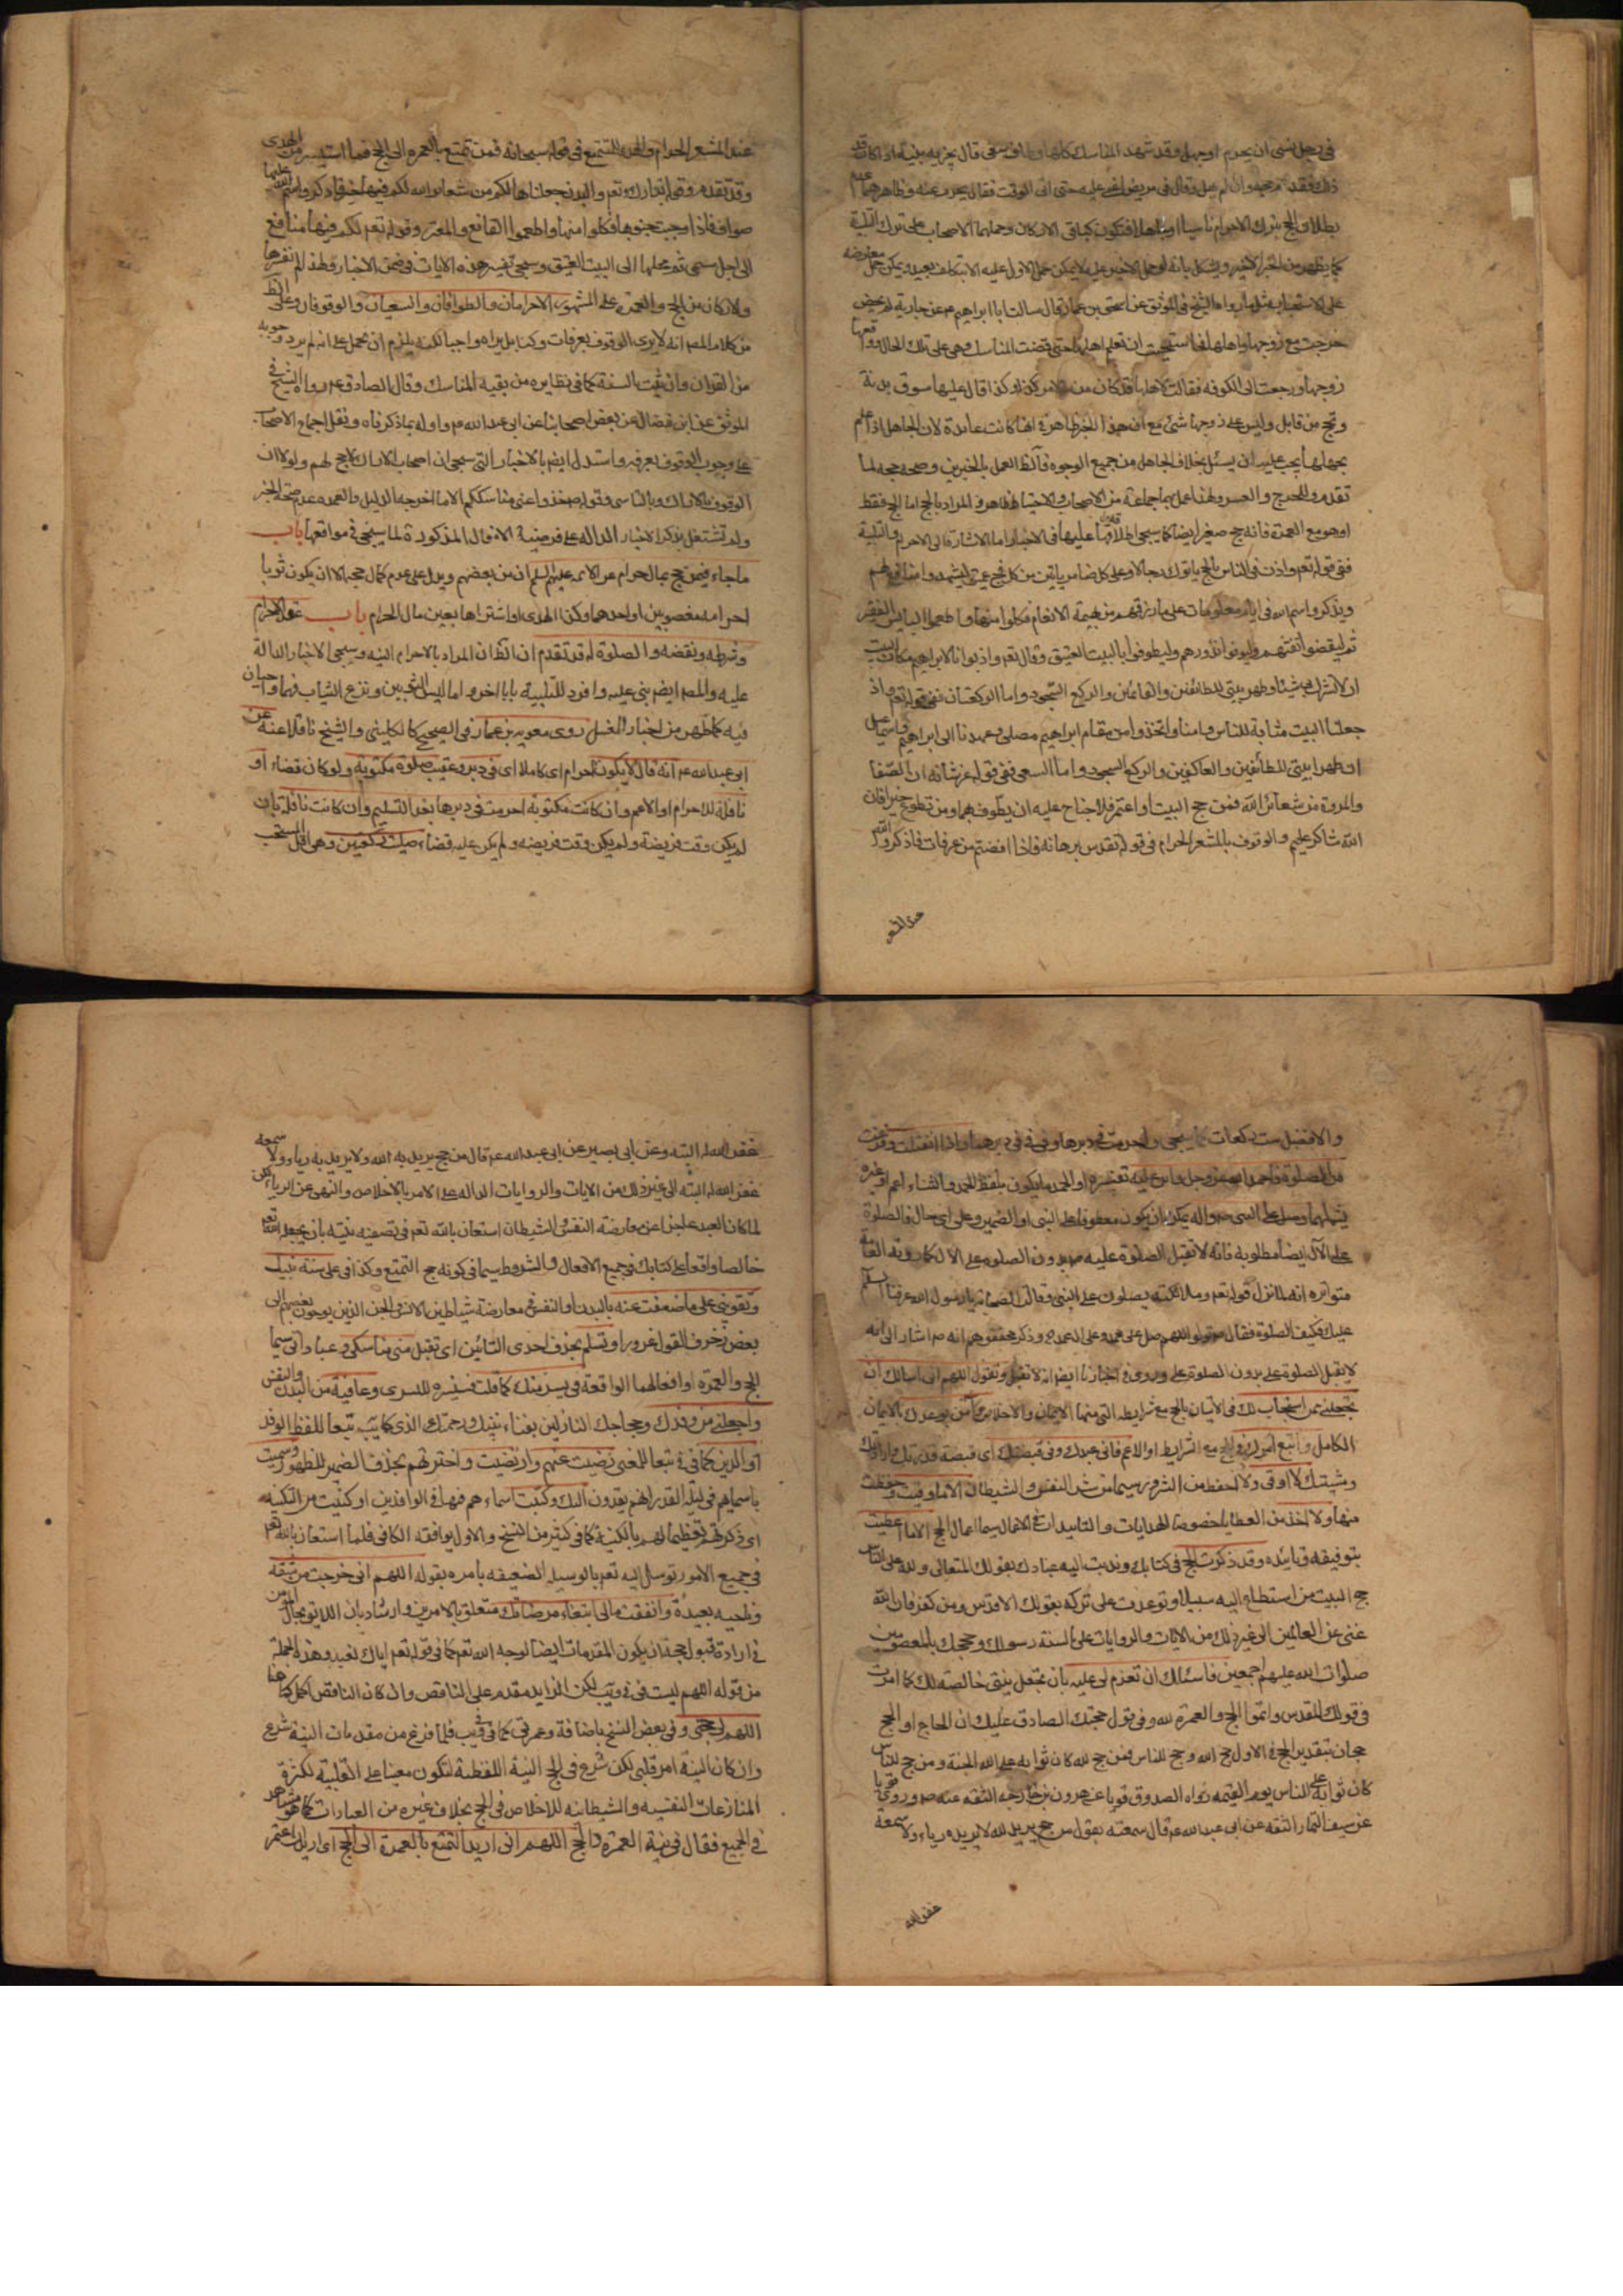 في رجل نسى ان يحرم او جهل وقد شهد المناسك كلها وطاف وسعى قال يجزيه نيته اذا كان قد
ذلك فقد تم حجه وان لم يهل وقال في مريض اغمي عليه حتى اتى الوقت فقال يحرم عنه وظاهرهما عدم
بطلان الحج بترك الاحرام ناسيا او جاهلا فتكون كباقى الاركان وحملهما الاصحاب على ترك التلبية
كما يظهر من الخبر الاخير ويشكل بانه لو حمل الاخير عليه لا يمكن حمل الاول عليه الا بتكلف بعيد ويمكن حمل معارضه
على الاستحباب مثل ما رواه الشيخ في الموثق عن اسحق بن عمار قال سالت ابا ابراهيم ع عن جارية لم تحض
خرجت مع زوجها واهلها فاستحيت ان تعلم اهلها حتى قضت المناسك وهي على تلك الحال وواقعها
زوجها ورجعت الى الكوفه فقالت لاهلها قد كان من الامر كذا وكذا قال عليها سوق بدنة
وتحج من قابل وليس على زوجها شئ مع ان هذا الخبر ظاهر في انها كانت عامدة لان الجاهل اذا علم
بجهله يجب عليه ان يسئل بخلاف الجاهل من جميع الوجوه فالظ العمل بالخبرين وصحه حجه لما
تقدم وللحرج والعسر ولهذا عمل بهما جماعة من الاصحاب والاحتياط ظاهر والمراد بالحج اما الحج فقط
او هو مع العمرة فانه حج صغير ايضا كما سيجى اطلاقها عليها في الاخبار اما الاشارة الى الاحرام والتلبية
ففي قوله تعم واذن في الناس بالحج ياتوك رجالا وعلى كل ضامر ياتين من كل فج عميق ليشهدوا منافع لهم
ويذكروا اسم الله في ايام معلومات على ما رزقهم من بهيمة الانعام فكلوا منها واطعموا البايس الفقير
ثم ليقضوا تفثهم وليوفوا نذورهم وليطوفوا بالبيت العتيق وقال تعم واذ بوانا لابراهيم مكان البيت
ان لا تشرك بي شيئا وطهر بيتي للطائفين والقائمين والركع السجود واما الركعتان ففي قوله تعم واذ
جعلنا البيت مثابة للناس وامنا واتخذوا من مقام ابراهيم مصلى وعهدنا الى ابراهيم واسمعيل
ان طهرا بيتي للطائفين والعاكفين والركع السجود واما السعى ففي قوله عز شانه ان الصفا
والمروة من شعائر الله فمن حج البيت او اعتمر فلا جناح عليه ان يطوف بهما ومن تطوع خيرا فان
الله شاكر عليم والوقوف بالمشعر الحرام في قوله تقدس برهانه فاذا افضتم من عرفات فاذكروا الله
عند المشعر
عند المشعر الحرام والهدى للتمتع في قوله سبحانه فمن تمتع بالعمره الى الحج فما استيسر من الهدى
وقد تقدم وقوله تبارك وتعم والبدن جعلناها لكم من شعاير الله لكم فيها خير فاذكروا اسم الله عليها
صواف فاذا وجبت جنوبها فكلوا منها واطعموا القانع والمعتر وقوله تعم لكم فيها منافع
الى اجل مسمى ثم محلها الى البيت العتيق وسيجى تفسير هذه الايات في ضمن الاخبار ولهذا لم نفسرها
والاركان من الحج والعمرة على المشهور الاحرامان والطوافان والسعيان والوقوفان وعلى الظ
من كلام المص انه لا يرى الوقوف بعرفات ركنا بل يراه واجبا لكنه يلزم ان يحمل على انه لم يرد وجوبه
من القران وان ثبت بالسنة كما في نظايره من بقيه المناسك وقال الصادق ع رواه الشيخ في
الموثق عن ابن فضال عن بعض اصحابنا عن ابى عبد الله ع واوله بما ذكرناه ونقل اجماع الاصحاب
على وجوب الوقوف بعرفه واستدل ايضم بالاخبار التى سيجى ان اصحاب الاراك لا حج لهم ولولا ان
الوقوف بالاراك وبالتاسى وقوله ص خذوا عنى مناسككم الا ما اخرجه الدليل والعمده عدم صحه الخبر
ولم نشتغل بذكر الاخبار الداله على فرضية الافعال المذكورة لما سيجى في مواقعها باب
ما جاء فيمن حج بمال حرام عن الائمه عليهم السلم ان من بعضهم ويدل على عدم كمال حجه الا ان يكون ثوبا
احرامه مغصوبين او احدهما وكذا الهدى او اشتراها بعين مال الحرام باب عقد الاحرام
وشرطه ونقضه والصلوة له قد تقدم ان الظ ان المراد بالاحرام النيه وسيجى الاخبار الدالة
عليه والمص ايضم بنى عليه وافرد للتلبية بابا اخر واما لبس الثوبين ونزع الثياب فهما واجبان
فيه كما ظهر من اخبار الغسل روى معويه بن عمار في الصحيح كالكلينى والشيخ ناقلا عنه عن
ابى عبد الله ع انه قال لا يكون احرام اى كاملا اى في دبر وعقيب صلوة مكتوبة ولو كان قضاء او
نافلة للاحرام او الاعم وان كانت مكتوبة احرمت في دبرها بعد التسليم وان كانت نافلة بان
لم يكن وقت فريضة ولم يكن وقت فريضه ولم يكن عليه قضاء صليت ركعتين وهى اقل المستحب
والافضل ست ركعات كما سيجى واحرمت في دبرها وفي في في دبرهما واذا انفتلت وفرغت
من الصلوة فاحمد الله عز وجل واثن عليه تفسيره او الحمد ما يكون بلفظ الحمد والثناء اعم او غيره
يشملهما وصل على النبى ص واله يمكن ان يكون معطوفا على النبى او الضمير وعلى اى حال فالصلوة
على الآل ايضا مطلوبة فانه لا تقبل الصلوة عليه ص بدون الصلوه على الآل كما روته العامة
متواتره انه لما نزل قوله تعم وملائكته يصلون على النبى وقالت الصحابة يا رسول الله عرفنا السلم
عليك فكيف الصلوة فقال ص قولوا اللهم صل على محمد وعلى ال محمد وذكر محققوهم انه ص اشار الى انه
لا يقبل الصلوة على بدون الصلوة على وروى في اخبارنا ايضا انه لا تقبل وتقول اللهم انى اسالك ان
تجعلنى ممن استجاب لك في الاتيان بالحج مع شرايطه التى منها الايمان والاخلاص وآمن بوعدك بالايمان
الكامل واتبع امرك في الحج مع الشرايط او الاعم فانى عبدك وفى قبضتك اى قبضة قدرتك وارادتك
ومشيتك لا اوقى ولا احفظ من الشرور سيما من شر النفس والشيطان الا ما وقيت وحفظت
منها ولا اخذ من العطايا خصوصا الهدايات والتاييدات في الافعال سيما اعمال الحج الا ما اعطيت
بتوفيقه وتاييده وقد ذكرت الحج في كتابك وندبت اليه عبادك بقولك المتعالى ولله على الناس
حج البيت من استطاع اليه سبيلا وتوعدت على تركه بقولك الاقدس ومن كفر فان الله
غنى عن العالمين الى غير ذلك من الايات والروايات على السنة رسولك وحججك بالمعصومين
صلوات الله عليهم اجمعين فاسئلك ان تعزم لى عليه بان تجعل نيتى خالصة لك كما امرت
في قولك المقدس واتموا الحج والعمرة لله وفى قول حجتك الصادق عليك ان الحاج او الحج
حجان بتقدير الحج في الاول حج لله وحج للناس فمن حج لله كان ثوابه على الله الجنة ومن حج للناس
كان ثوابه على الناس يوم القيمه رواه الصدوق قويا عن هرون بن خارجه الثقه عنه ص وروى قويا
عن سيف التمار الثقه عن ابى عبد الله ع قال سمعته يقول من حج يريد لله لا يريد به رياء ولا سمعة
غفر الله
غفر الله له البته وعن ابى بصير عن ابى عبد الله ع قال من حج يريد به الله ولا يريد به رياء ولا سمعه
غفر الله له البته الى غير ذلك من الايات والروايات الداله على الامر بالاخلاص والنهى عن الرياء
لما كان العبد عاجزا عن معارضة النفس والشيطان استعان بالله تعم في تصفيه نيته بان يجعله الله تعم
خالصا واقعا على كتابك في جميع الافعال والشروط سيما في كونه حج التمتع وكذا في على سنة نبيك
وتقوينى على ما ضعفت عنه بالبدن او النفس في معارضة شياطين الانس والجن الذين يوحون بعضهم الى
بعض زخرف القول غرورا وتسلم بحذف احدى التائين اى تقبل منى مناسكى وعباداتى سيما
الحج والعمره او افعالهما الواقعة في يسر منك كما قلت فسنيسره لليسرى وعافية من البدن والنفس
واجعلنى من وفدك وحجاجك النازلين بفناء بيتك ورحمتك الذى كما يب تبعا للفظ الوفد
او الذين كما في في تبعا للمعنى رضيت عنهم وارتضيت واخترتهم بحذف الضمير للظهور وسميت
باسمايهم في ليلة القدر انهم يفدون اليك وكتبت اسماءهم فيها في الوافدين او كنيت من التكنيه
اى ذكرتهم تعظيما لهم بالكنية كما في كثير من النسخ والاول يوافقه الكافى فلما استعان بالله تعم
في جميع الامور توسل اليه تعم بالوسيله الضعيفه بامره بقوله اللهم انى خرجت من شقة
وناحيه بعيدة وانفقت مالى ابتغاء مرضاتك متعلق بالامرين وارشاد بان اللايق بحال المؤمن
في ارادة قبول حجه ان يكون المقدمات ايضا لوجه الله تعم كما في قوله تعم اياك نعبد وهذه الجملة
من قوله اللهم ليست في في ويب لكن الزايد مقدم على الناقص وان كان الناقص اكمل كما هنا
اللهم فتمم لى حجتى وفى بعض النسخ باضافة وعمرتى كما في في يب فلما فرغ من مقدمات النية شرع
وان كان النية امر قلبى لكن شرع في الحج النية اللفظية لتكون معينا على القلبية لكثرة
المنازعات النفسيه والشيطانيه للاخلاص في الحج بخلاف غيره من العبادات كما هو مشاهد
في الجميع فقال في نية العمره والحج اللهم انى اريد التمتع بالعمرة الى الحج اى اريد ان اعتمر